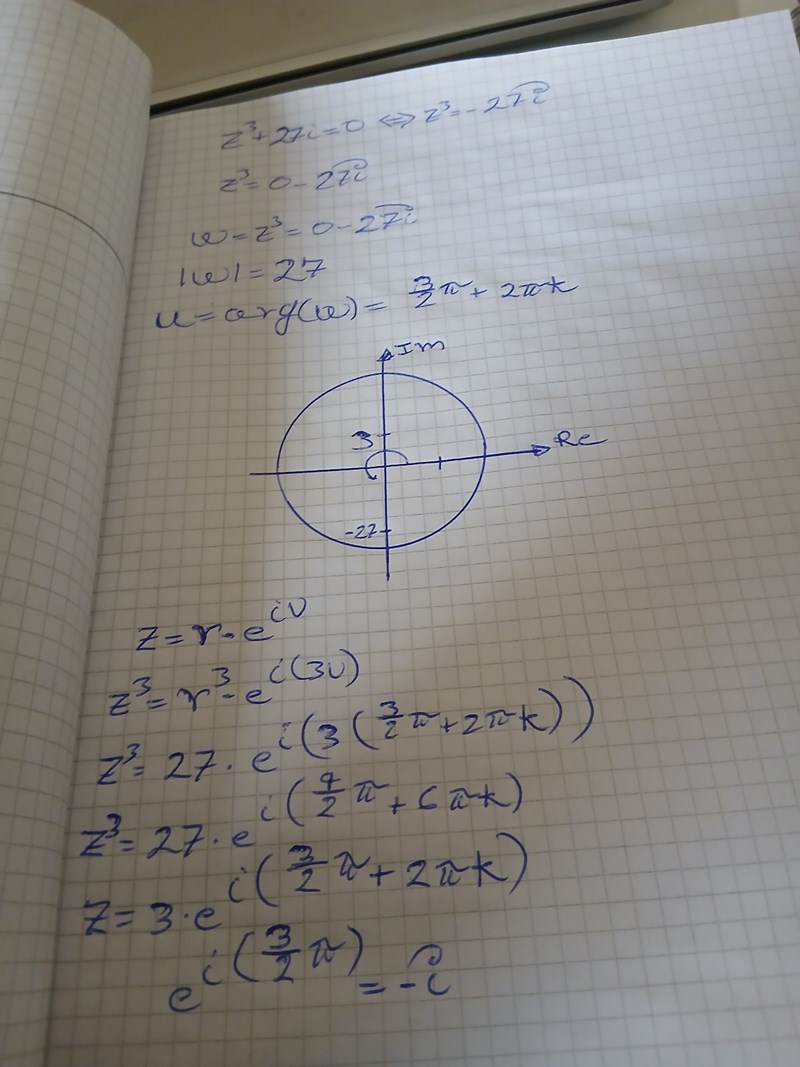 z³+27i=0 ⇔ z³=-27i
z³=0-27i
w=z³=0-27i
|w|=27
u=arg(w)= 3/2 π + 2πk
Im
3
Re
-27
z=r·e^(iv)
z³=r³·e^(i(3v))
z³=27·e^(i(3(3/2 π+2πk)))
z³=27·e^(i(9/2 π+6πk))
z=3·e^(i(3/2 π+2πk))
e^(i(3/2 π))=-i